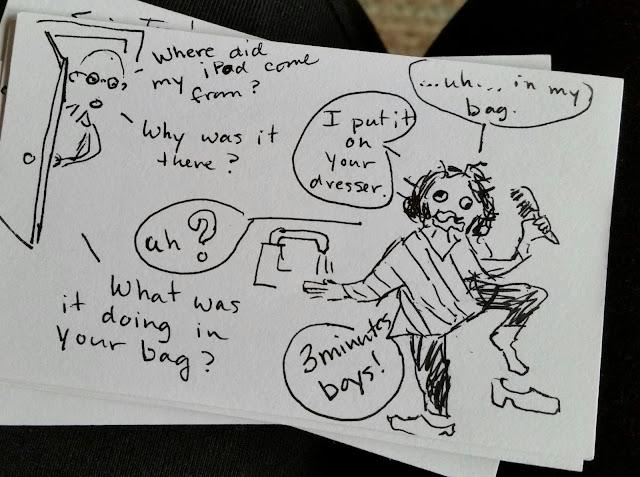 Where did
my iPad come
from?
...uh... in my
bag.
Why was it
there?
I put it
on
your
dresser.
uh?
What was
it doing in
your bag?
3 minutes
boys!